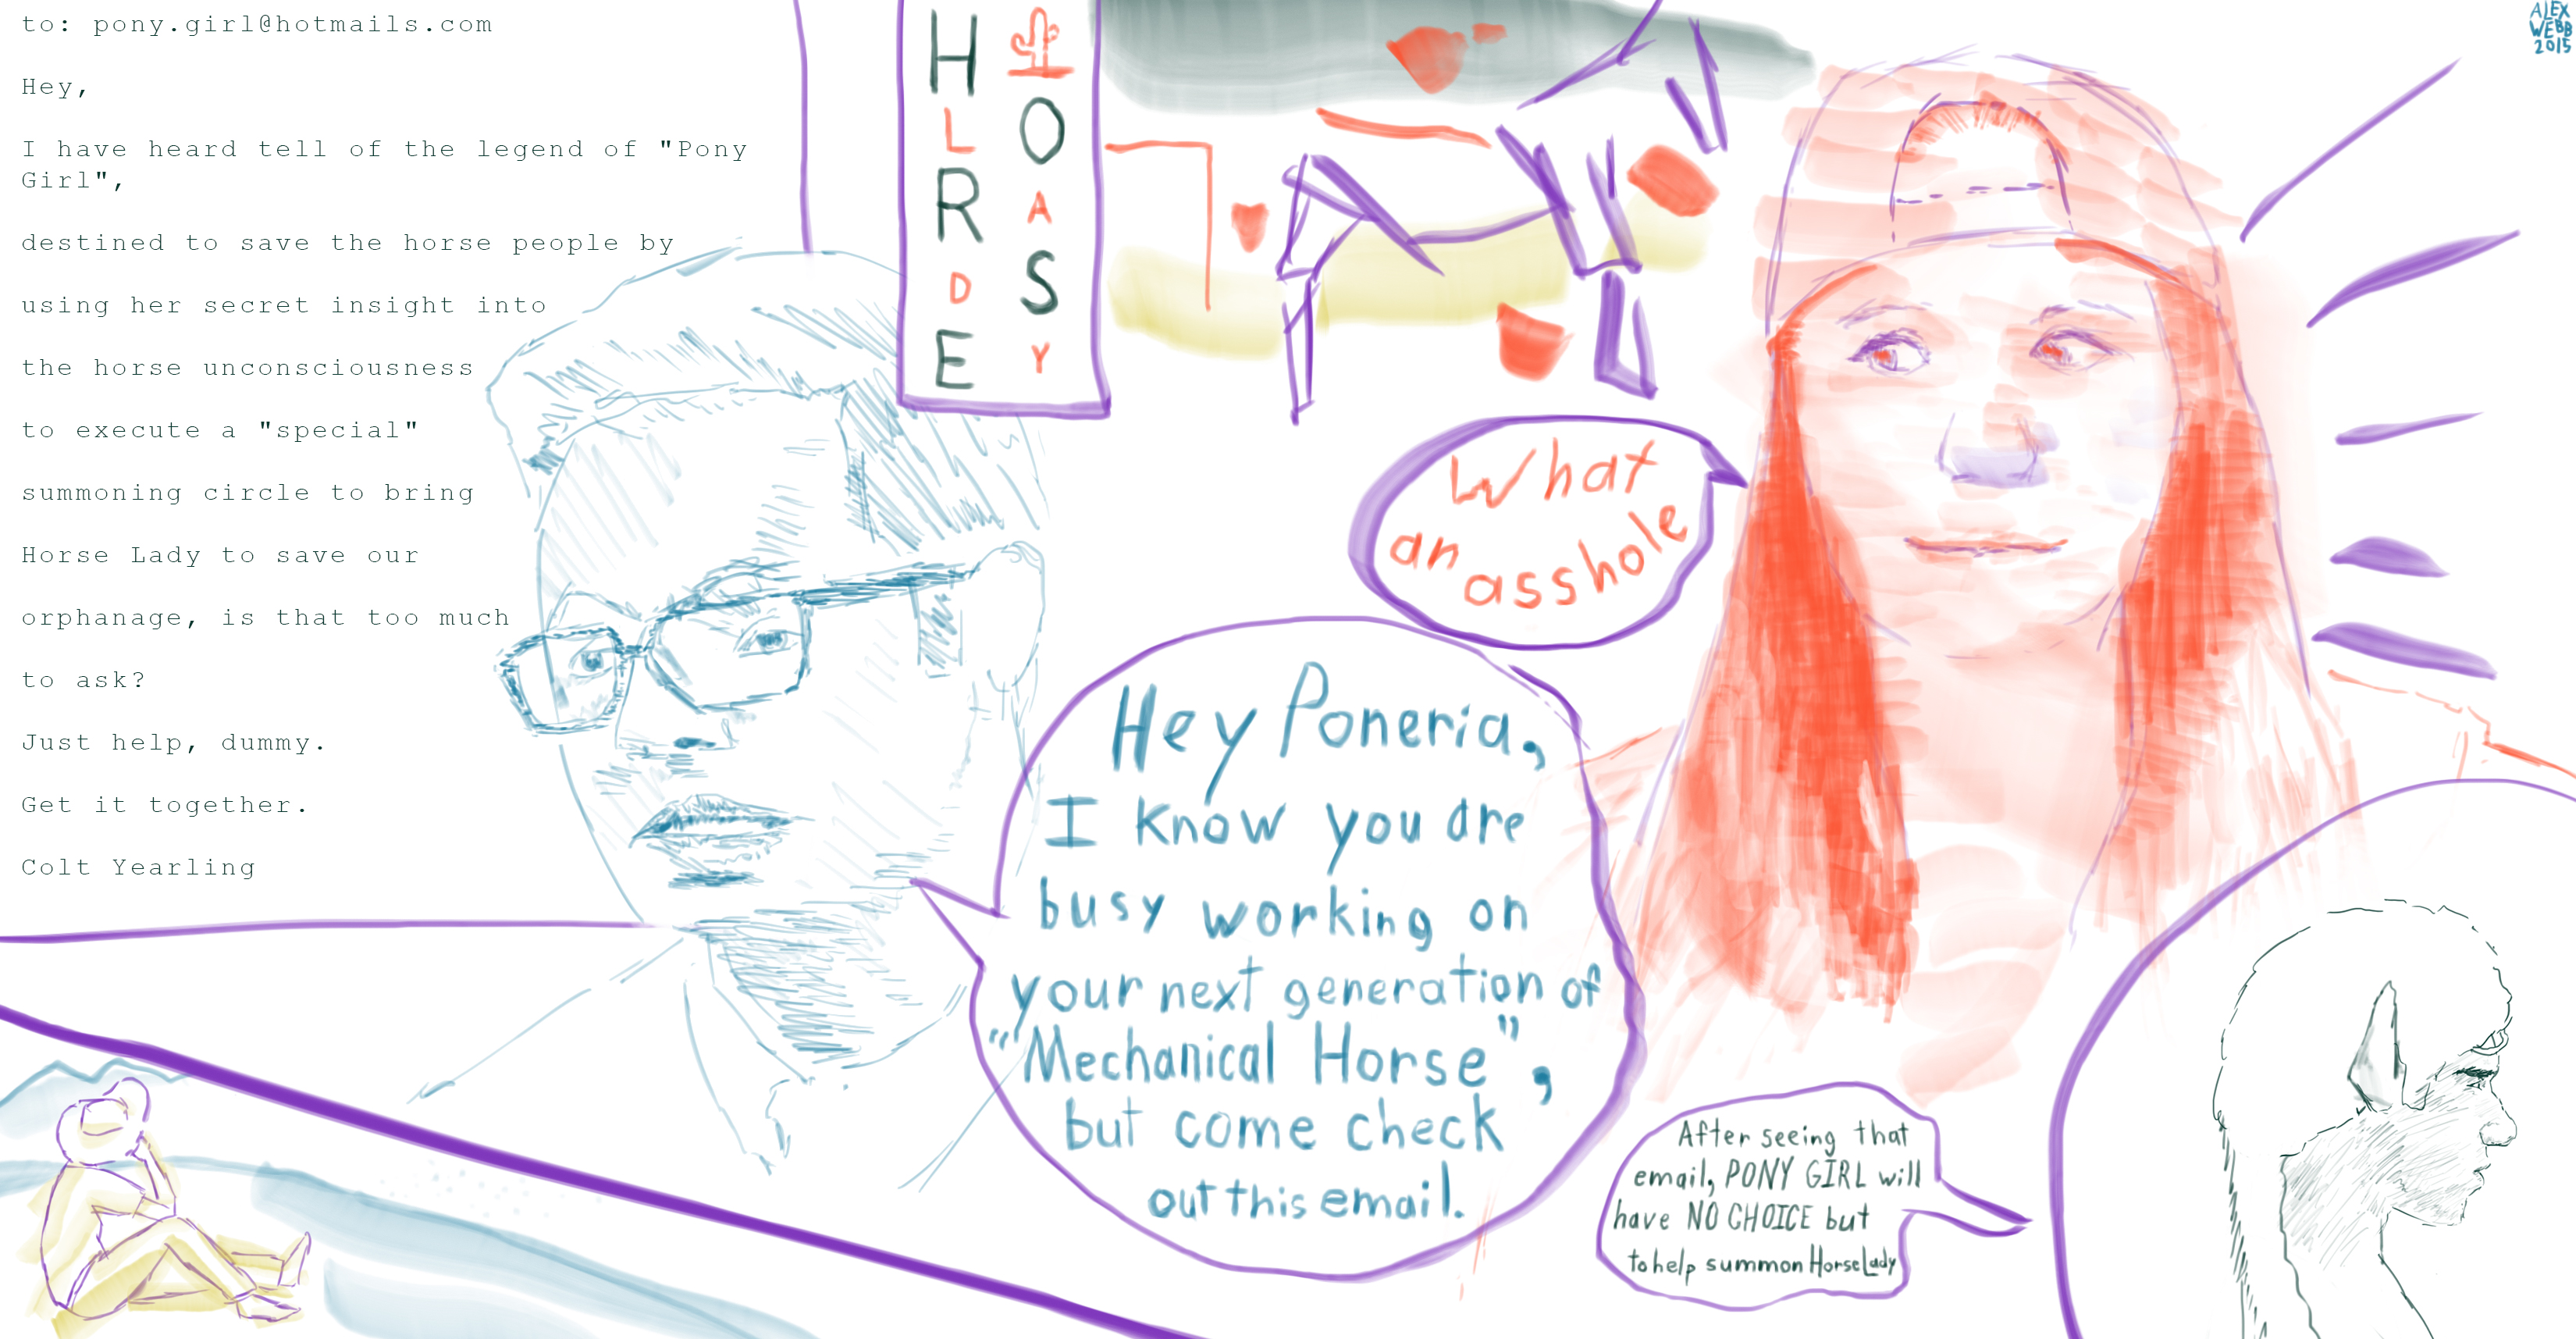 to: pony.girl@hotmails.com
Hey,
I have heard tell of the legend of "Pony
Girl",
destined to save the horse people by
using her secret insight into
the horse unconsciousness
to execute a "special"
summoning circle to bring
Horse Lady to save our
orphanage, is that too much
to ask?
Just help, dummy.
Get it together.
Colt Yearling
HORSE
LADY
ALEX
WEBB
2015
What
an asshole
Hey Poneria,
I know you are
busy working on
your next generation of
"Mechanical Horse",
but come check
out this email.
After seeing that
email, PONY GIRL will
have NO CHOICE but
to help summon Horse Lady